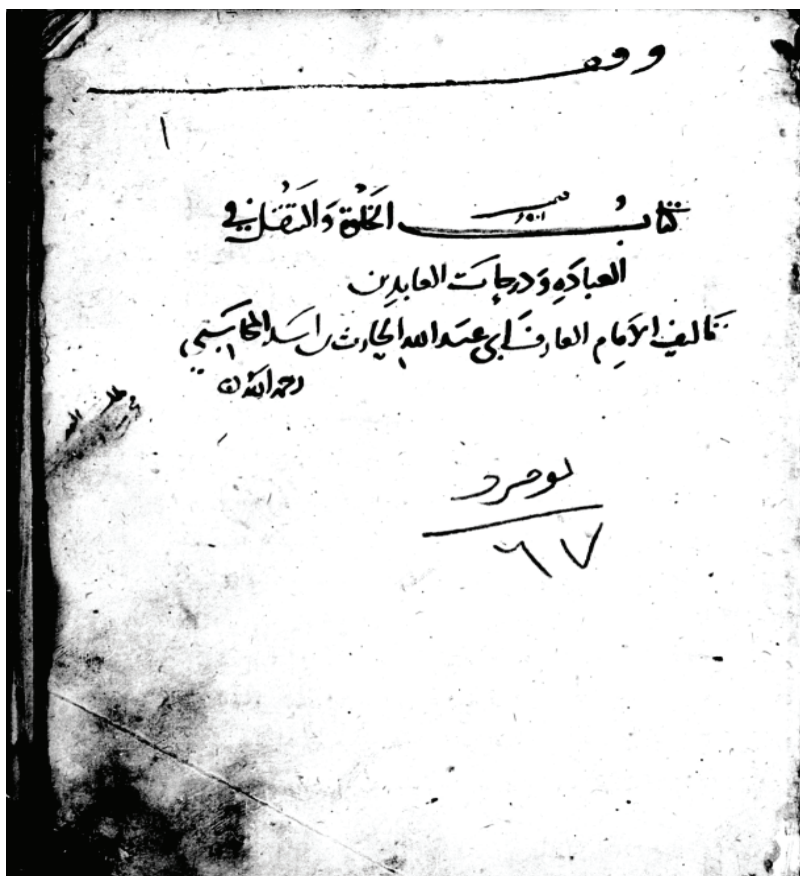 وقف
١
كتاب الخلوة والتنقل في
العباده ودرجات العابدين
تاليف الامام العارف ابي عبد الله الحارث بن اسد المحاسبي
رحمه الله
٦٧